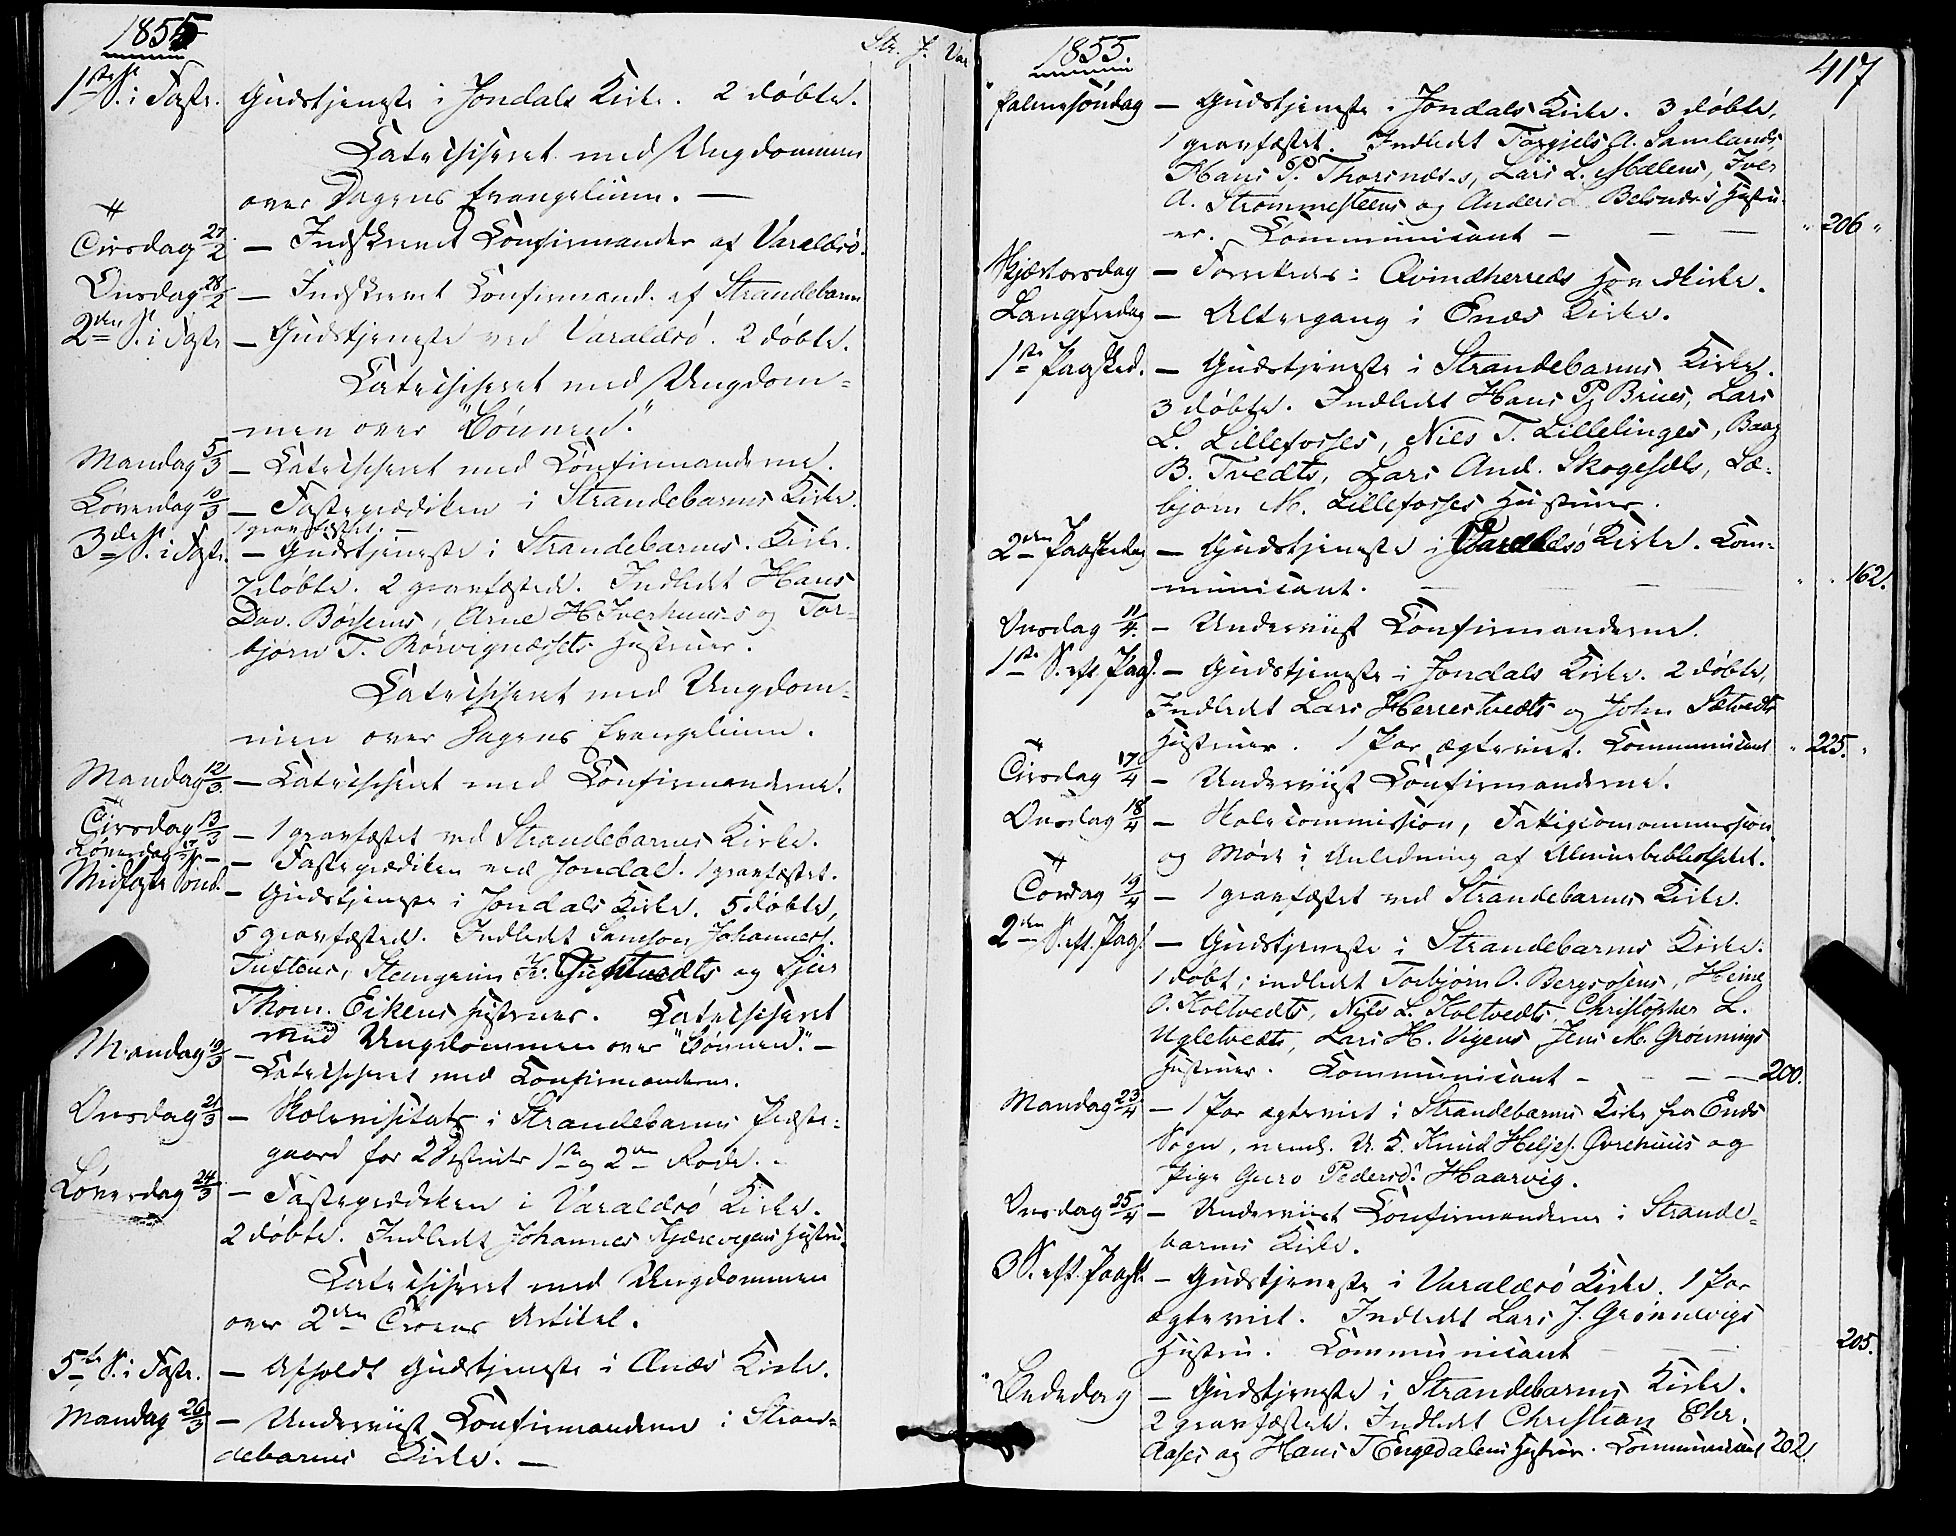 1855
Str. J. Var
1ste S. i Faste. Gudstjeneste i Jondals Kirke. 2 døbte.
Catechiseret med Ungdommen
over Dagens Evangelium. —
Tirsdag 27/2 — Indskrevet Confirmander af Varaldsö.
Onsdag 28/2 — Indskrevet Confirmand. af Strandebarm
2den S. i Faste — Gudstjeneste ved Varaldsö. 2 døbte.
Catechiseret med Ungdom-
men over "Bönnen".
Mandag 5/3 — Catechiseret med Confirmanderne.
Löverdag 10/3 — Fasteprædiken i Strandebarms Kirke.
1 gravfæstet. —
3die S. i Faste. — Gudstjeneste i Strandebarms Kirke.
7 døbte. 2 gravfæstede. Indledet Hans
Dav. Børsems, Arne H. Iverhuus-s og Tor-
bjørn T. Rørvignæssets Hustruer.
Catechiseret med Ungdom-
men over Dagens Evangelium.
Mandag 12/3 — Catechiseret med Confirmanderne.
Tirsdag 13/3 — 1 gravfæstet ved Strandebarms Kirke.
Löverdag 17/3 — Fasteprædiken ved Jondal. 1 gravfæstet.
Midfaste Sönd. — Gudstjeneste i Jondals Kirke. 5 døbte,
5 gravfæstede. Indledet Samson Johanness.
Tuftens, Stengrim og Sjur
Thom. Eikens Hustruer. Catechiseret
med Ungdommen over "Bönnen". —
Mandag 19/3 — Catechiseret med Confirmanderne.
Onsdag 21/3 — Skolevisitats i Strandebarms Præste-
gaard for 2 Distrikter 1ste og 2den Rode. —
Löverdag 24/3 — Fasteprædiken i Varaldsö Kirke.
2 døbte. Indledet Johannes Kjærevigens Hustru.
Catechiseret med Ungdommen
over 2den Troens Artikel.
5te S. i Faste. — Afholdt Gudstjeneste i Ænæs Kirke.
Mandag 26/3 — Underviist Confirmanderne i Stran-
debarms Kirke. —
1855.
417
Palmesöndag — Gudstjeneste i Jondals Kirke. 3 døbte,
1 gravfæstet. Indledet Torgjels A. Samlands,
Hans P. Thorsnæs-s, Lars L. Mælens, Iver
A. Strömmesteens og Anders L. Belsnæs's Hustru-
er. Communicant — — — " 206 "
Skjærtorsdag — Forrettede i Qvindherreds Hovedkirke.
Langfredag — Altergang i Enæs Kirke.
1ste Paasked. — Gudstjeneste i Strandebarms Kirke.
3 døbte. Indledet Hans P. Brues, Lars
L. Lillefosses, Niels T. Lillelinges, Baar
B. Tvedts, Lars And. Skogesæls, Læ-
björn M. Lillefosses Hustruer.
2den Paaskedag — Gudstjeneste i Varaldsö Kirke. Com-
municant. — — — " " 162.
Onsdag 11/4. — Underviist Confirmanderne.
1ste S. eft. Paas. — Gudstjeneste i Jondals Kirke. 2 døbte,
Indledet Lars Herrestvedts og John Sætvedts
Hustruer. 1 Par ægteviet. Communicant " 225. "
Tirsdag 17/4 — Underviist Confirmanderne.
Onsdag 18/4 — Skolecommission, Fattigcommission
og Möde i Anledning af Almuebibliotheket.
Torsdag 19/4 — 1 gravfæstet ved Strandebarms Kirke.
2den S. eft. Paas. — Gudstjeneste i Strandebarms Kirke.
1 døbt; indledet Torbjörn O. Bergsosens, Heine
O. Holtvedts, Nils L. Holtvedts, Christopher L.
Ugletvedts, Lars H. Vigens, Jens M. Grönnings
Hustruer. Communicant — — — 200.
Mandag 23/4 — 1 Par ægteviet i Strandebarms Kirke fra Enæs
Sogn, neml. U. K. Knud Heljes. Øvrehuus og
Pige Guro Pedersd. Haarvig.
Onsdag 25/4 — Underviist Confirmanderne i Strande-
barms Kirke.
3 S. eft. Paaske — Gudstjeneste i Varaldsö Kirke. 1 Par
ægteviet. Indledet Lars J. Grönnevigs
Hustru. Communicant — — 205.
Bededag — Gudstjeneste i Strandebarms Kirke.
2 gravfæstede. Indledet Christian Ehr.
Aases og Hans T. Engedalens Hustruer. Communicant 202.